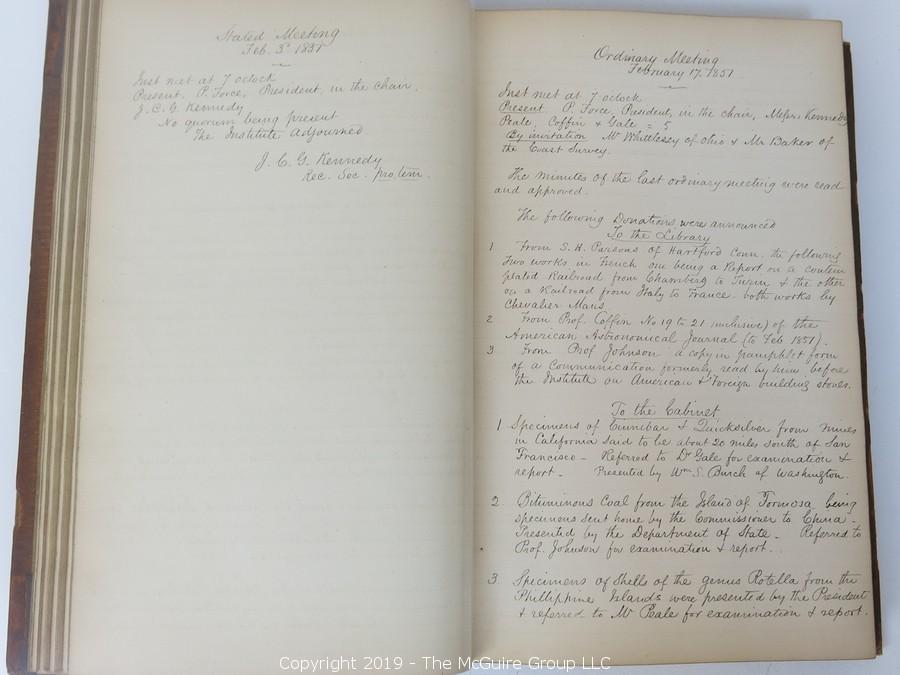 Stated Meeting
Feb. 3d 1851
Inst met at 7 oclock
Present. P. Force, President, in the chair,
J. C. G. Kennedy
No quorum being present
The Institute Adjourned
J. C. G. Kennedy
Rec. Sec. pro.tem.
Ordinary Meeting
February 17. 1851
Inst met at 7 oclock
Present P. Force, President, in the chair, Messrs. Kennedy
Peale, Coffin & Gale = 5
By invitation Mr Whittlessy of Ohio & Mr Baker of
the Coast Survey.
The minutes of the last ordinary meeting were read
and approved.
The following Donations were announced
To the Library
1 From S. H. Parsons of Hartford Conn. the following
two works in French one being a Report on a contem
plated Railroad from Chamberg to Turin & the other
on a Railroad from Italy to France. both works by
Chevalier Maus.
2. From Prof. Coffin No 19 to 21 inclusive) of the
American Astronomical Journal (to Feb 1851).
3 From Prof Johnson a copy in pamphlet form
of a Communication formerly read by him before
the Institute on American & Foreign building stones.
To the Cabinet
1 Specimens of Cinnibar & Quicksilver from mines
in California said to be about 20 miles south of San
Francisco - Referred to Dr Gale for examination &
report - Presented by Wm S. Burch of Washington.
2. Bituminous Coal from the Island of Formosa being
specimens sent home by the Commissioner to China -
Presented by the Department of State - Referred to
Prof. Johnson for examination & report.
3 Specimens of Shells of the genus Rotella from the
Phillippine Islands were presented by the President
& referred to Mr Peale for examination & report.
Copyright 2019 - The McGuire Group LLC